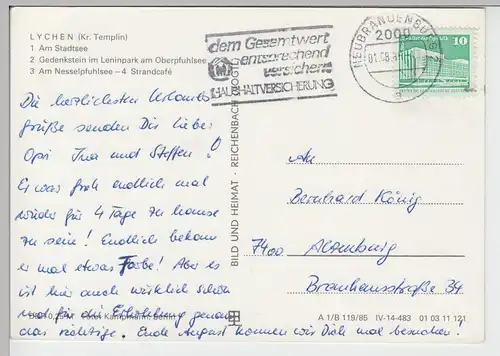 LYCHEN (Kr. Templin)
1 Am Stadtsee
2 Gedenkstein im Leninpark am Oberpfuhlsee
3 Am Nesselpfuhlsee – 4 Strandcafé
dem Gesamtwert
entsprechend
versichern
HAUSHALTVERSICHERUNG
NEUBRANDENBURG
2000
01.08.
a
10
DDR
Die herzlichsten Urlaubs-
grüße senden Dir lieber
Opi Ina und Steffen!
Er war froh endlich mal
wieder für 4 Tage zu hause
zu sein! Endlich bekam
er mal etwas Farbe! Aber es
ist hier auch wirklich schön
und für die Erholung genau
das richtige. Ende August kommen wir Dich mal besuchen!
BILD UND HEIMAT · REICHENBACH (VOGTL)
An
Bernhard König
7400 Altenburg
Brauhausstraße 34
Kampmann, Berlin
A 1/B 119/85 IV-14-483 01 03 11 121